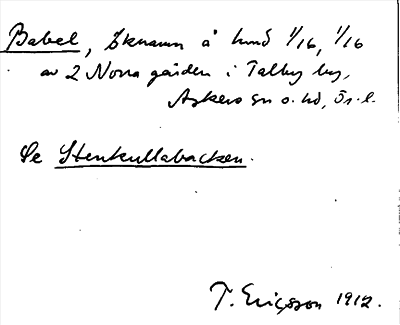 Babel, öknamn å hmd 1/16, 1/16
av 2 Norra gården i Talby by,
Askers sn o. hd, Ör. l.
Se Stenkullabacken.
T. Ericsson 1912.